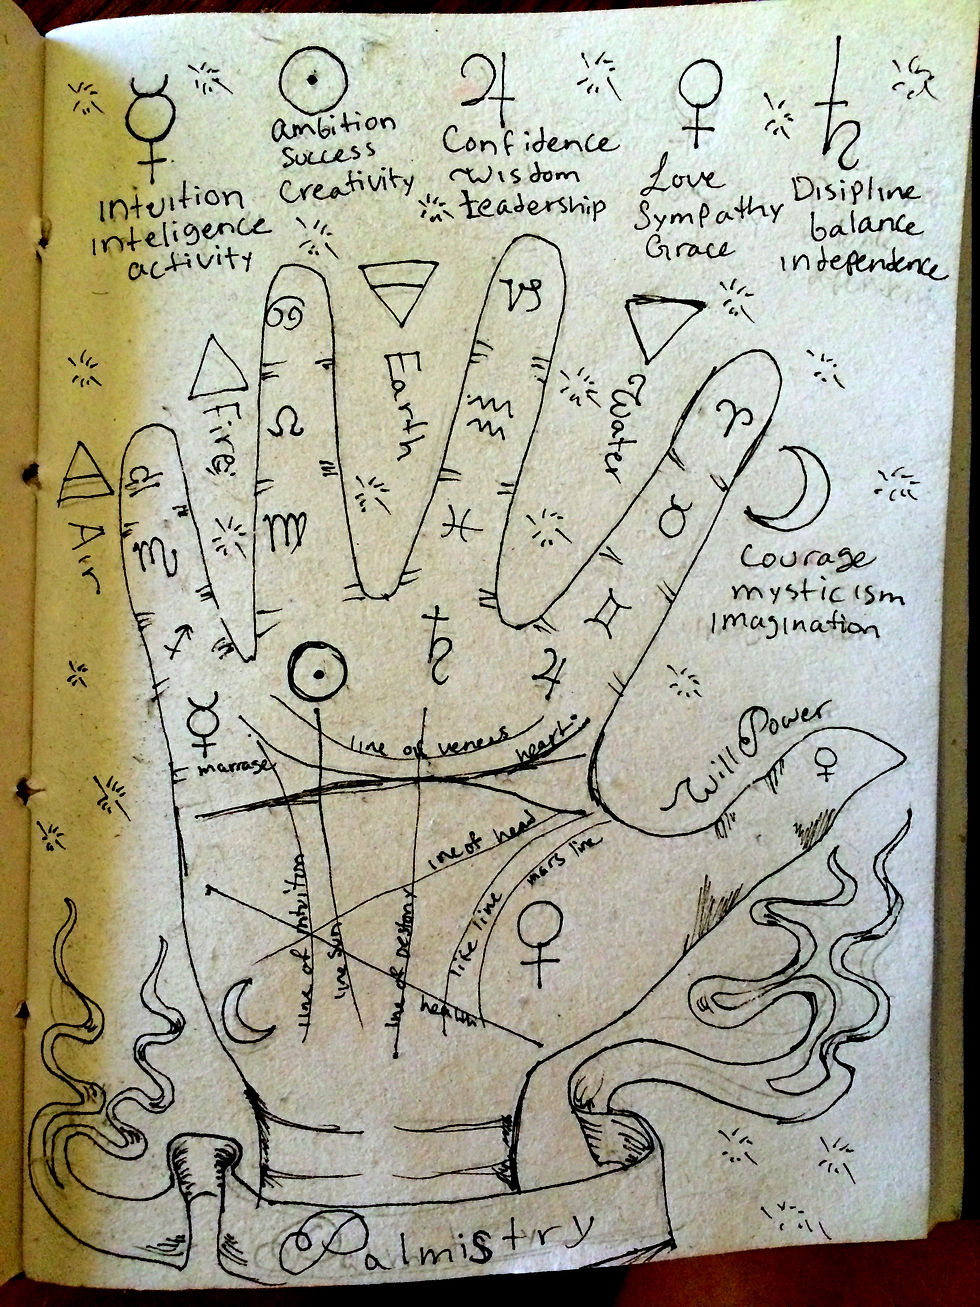 Intuition
inteligence
activity
ambition
success
Creativity
Confidence
wisdom
Leadership
Love
Sympathy
Grace
Disipline
balance
independence
Air
Fire
Earth
Water
Courage
mysticism
imagination
Will Power
line of veneus
heart
marrage
line of head
mars line
life line
line of intuiton
line sun
line of Destony
health
Palmistry